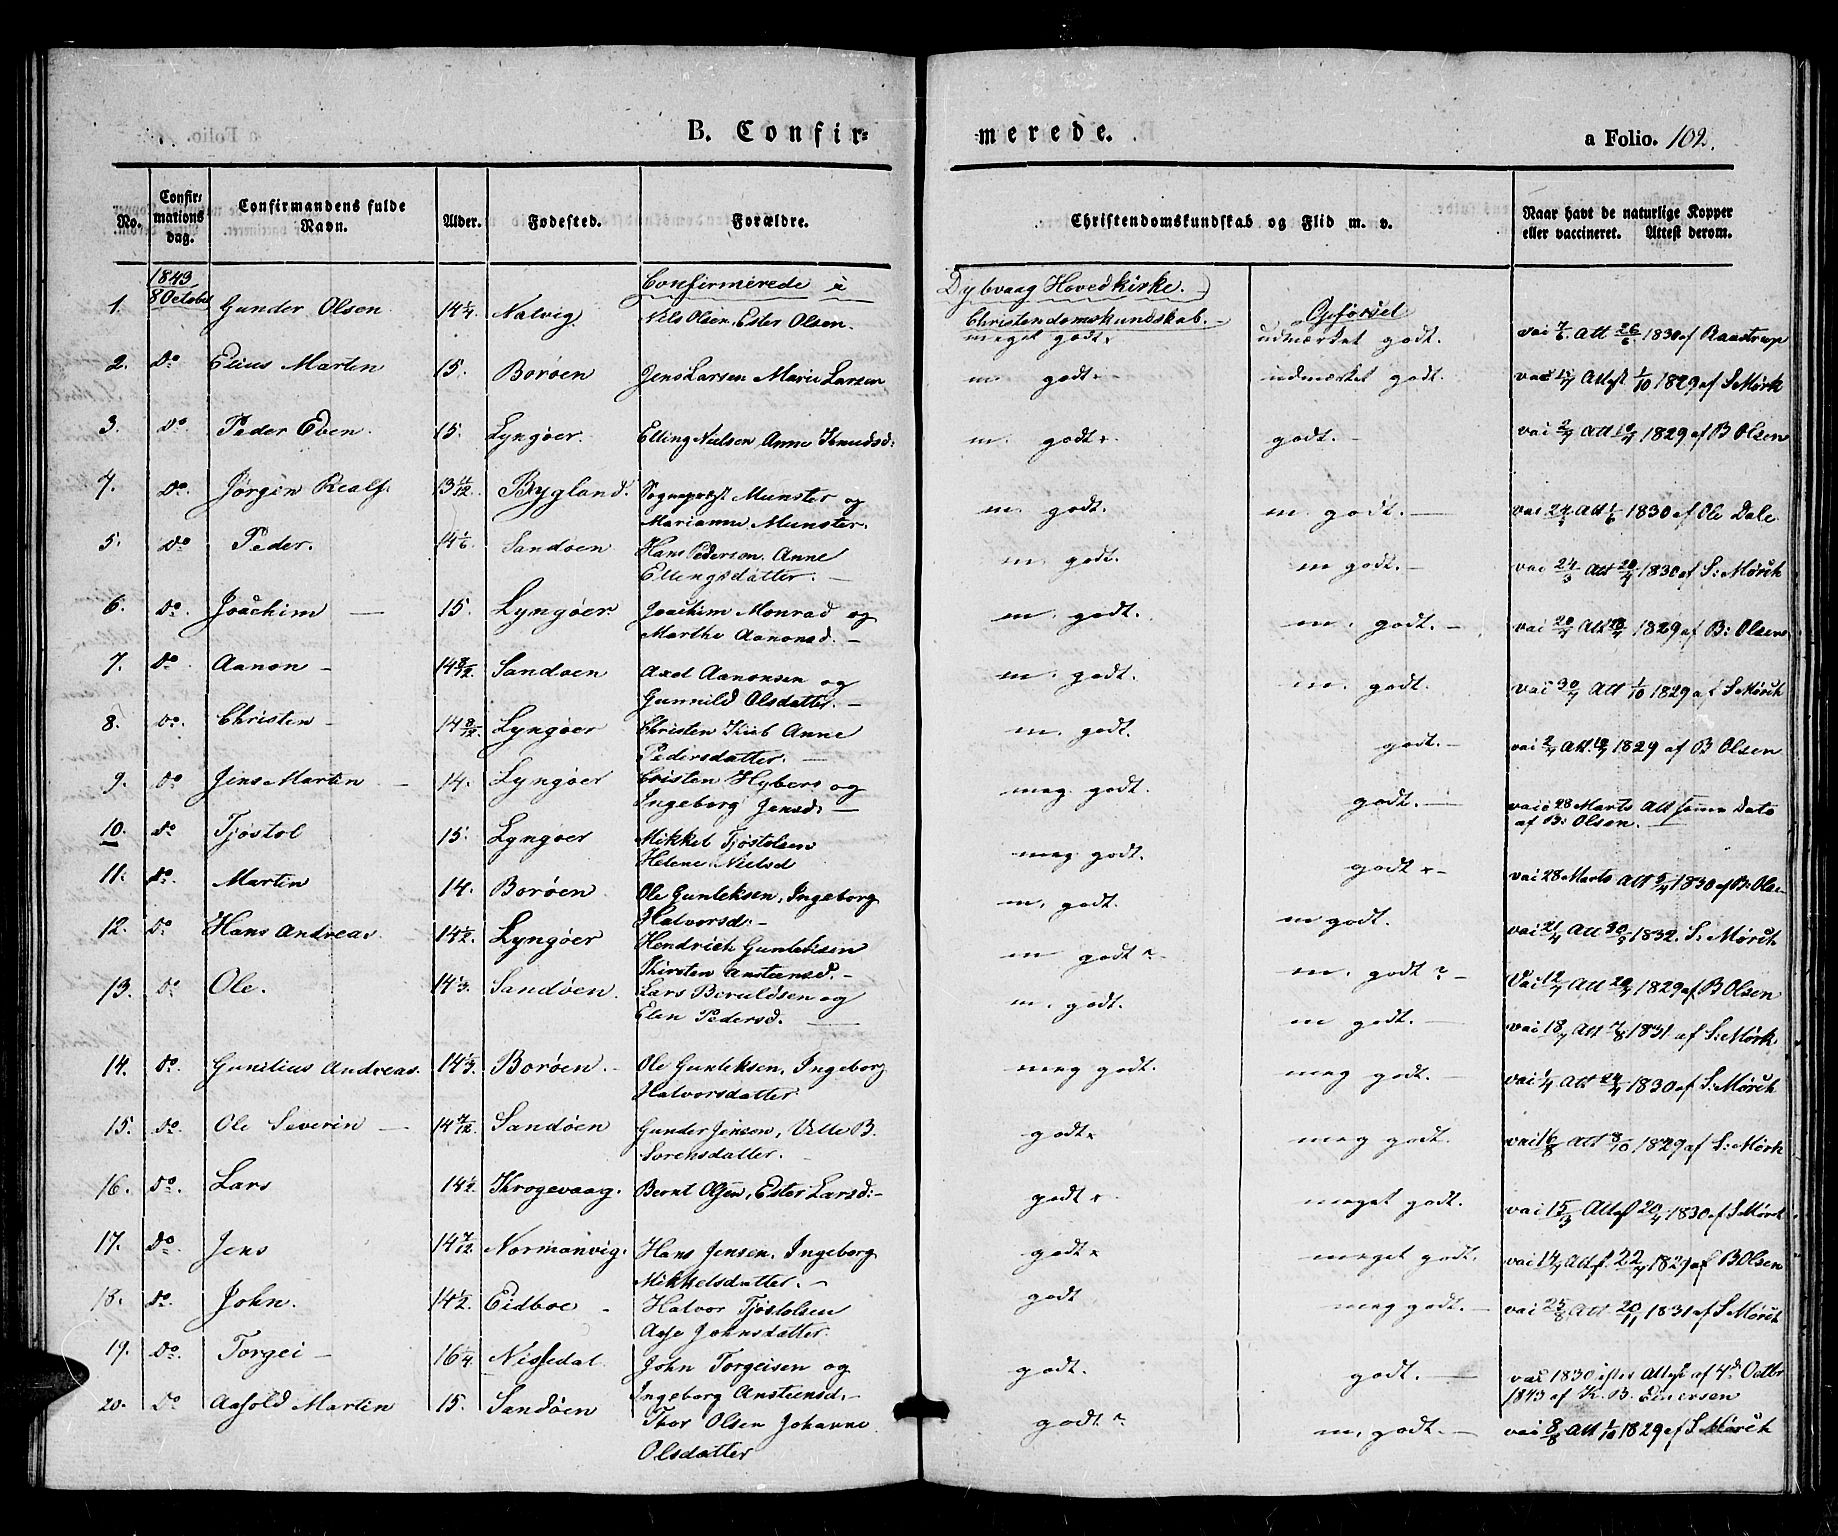 B. Confirmerede. a Folio. 102.
No. Confirmations dag. Confirmandens fulde Navn. Alder. Fødested. Forældre. Christendomskundskab og Flid m. v. Naar havt de naturlige Kopper eller vaccineret. Attest derom.
1843 Confirmerede i Dybvaag Hovedkirke.
Christendomskundskab. Opførsel
1. 8 October Gunder Olsen 14 1/4 Nalvig Nils Olsen, Ester Olsen. meget godt. udmærket godt. vac 7/6 Att 26/6 1830 af Raastrup
2. do Elius Martin 15. Borøen Jens Larsen Marie Larsen m. godt. udmærket godt. Attest 1/10 1829 af S Mørk
3. do Peder Even 15. Lyngøer. Elling Nielsen Anne Knudsd: m. godt. godt. 1829 af B Olsen
4. do Jørgen Realf 13 11/12 Bygland. Sognepræst Munster og
Marianne Munster. m. godt. m. godt. Att 1/6 1830 af Ole Dale.
5. do Peder. 14 1/6 Sandøen Hans Pederson. Anne
Ellingsdatter. m. godt. m godt. vac 24/3 Att 20/4 1830 af S: Mørch
6. do Joachim 15. Lyngøer Joachim Monrad og
Marthe Aanonsd. m. godt. m. godt. 1829 af B: Olsen
7. do Aanon 14 8/12 Sandøen Axel Aanonsen og
Gunnild Olsdatter. m. godt. m. godt. vac 30/7 Att 1/10 1829 af S Mørch
8. do Christen 14 8/12 Lyngøer Christen Anne
Pedersdatter. m. godt. godt. 1829 af B Olsen
9. do Jens Martin 14. Lyngøer Cristen Hybers og
Ingeborg Jensd: meg. godt. godt. vac 28 Marts Att samme Dato
af B: Olsen.
10. do Tjøstol 15. Lyngøer Mikkel Tjøstolsen
Helene Nielsd meg godt. godt vac 28 Marts Att 5/4 1830 af B: Olse
11. do. Martin 14. Borøen Ole Gunleksen, Ingeborg
Halvorsd. m. godt. m godt. vac 21/4 Att 1832. S: Mørch
12. do Hans Andreas 14 1/2 Lyngøer Hendrich Gunleksen
Kirsten Anstensd. m godt m. godt 1829 af B Olsen
13. do Ole. 14 1/3 Sandøen. Lars Beruldsen og
Elen Pedersd. m. godt. m godt. vac 18/7 Att 7/8 1831 af S: Mørk.
14. do Gunilius Andreas. 14 1/3 Borøen. Ole Gunleksen, Ingeborg
Halvorsdatter meg godt. meg godt. 1830 af S: Mørch
15. do. Ole Severin 14 7/12 Sandøen Gunder Jensen, B.
Sorensdatter. godt meg godt. vac 16/8 Att 8/10 1829 af S: Mørk
16. do. Lars 14 1/2 Krogevaag. Bernt Olsen, Ester Larsd: godt meget godt. vac 15/3 Attest 20/4 1830 af S Mørch
17. do. Jens 14 7/12 Normanvig. Hans Jensen, Ingeborg
Mikkelsdatter. godt meget godt. vac 14/7 Att. 22/7 1829 af B Olsen
18. do. John. 14 1/2 Eidboe Halvor Tjøstolsen
Aase Johnsdatter. godt meg godt. vac 25/8 Att 20/11 1831 af S Mørch
19. do. Torgei 16 1/4 Nissedal John Torgeisen og
Ingeborg Anstensd. godt. godt. vac 1830 efter Attest af 4de Octbr
1843 af K. B. Einersen
20. do Aasold Martin 15. Sandøen Thor Olsen Johanne
Olsdatter godt m. godt. vac 8/8 Att 1/10 1829 af S Mørch